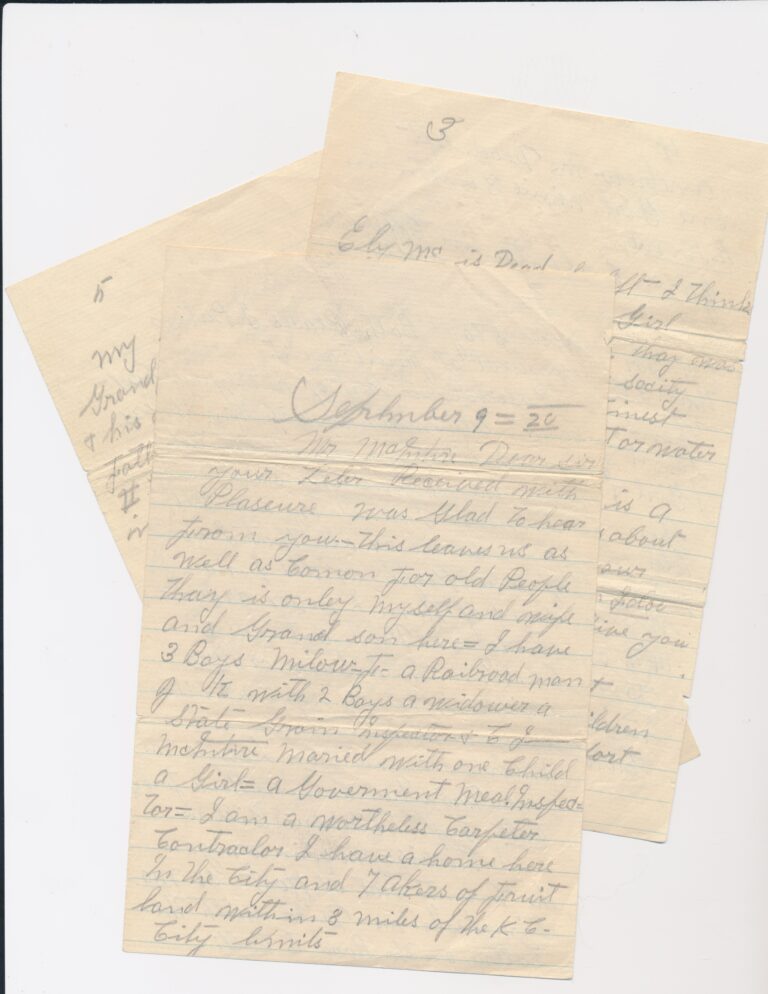 3
Eby Mc is Dead
ft I Think
Girl
thay was
socity
finest
For water
is a
about
our
give you
+
children
fort
5
My
Grand
+ his
Fath
II
in
September 9 = 20
Mr McIntire Dear sir
your Leter Received with
Plaseure was Glad To hear
From you — This leaves us as
well as Comon For old People
Thay is onley myself and wife
and Grand son here = I have
3 Boys Milow - F - a Railroad man
J K with 2 Boys a widower a
State Grain Inspector + C J —
McIntire Maried with one Child
a Girl = a Goverment Meal. Inspec=
Tor = I am a wortheless Carpeter
Contractor I have a home here
In The City and 7 Akers of Fruit
land within 3 miles of The K C -
City limits